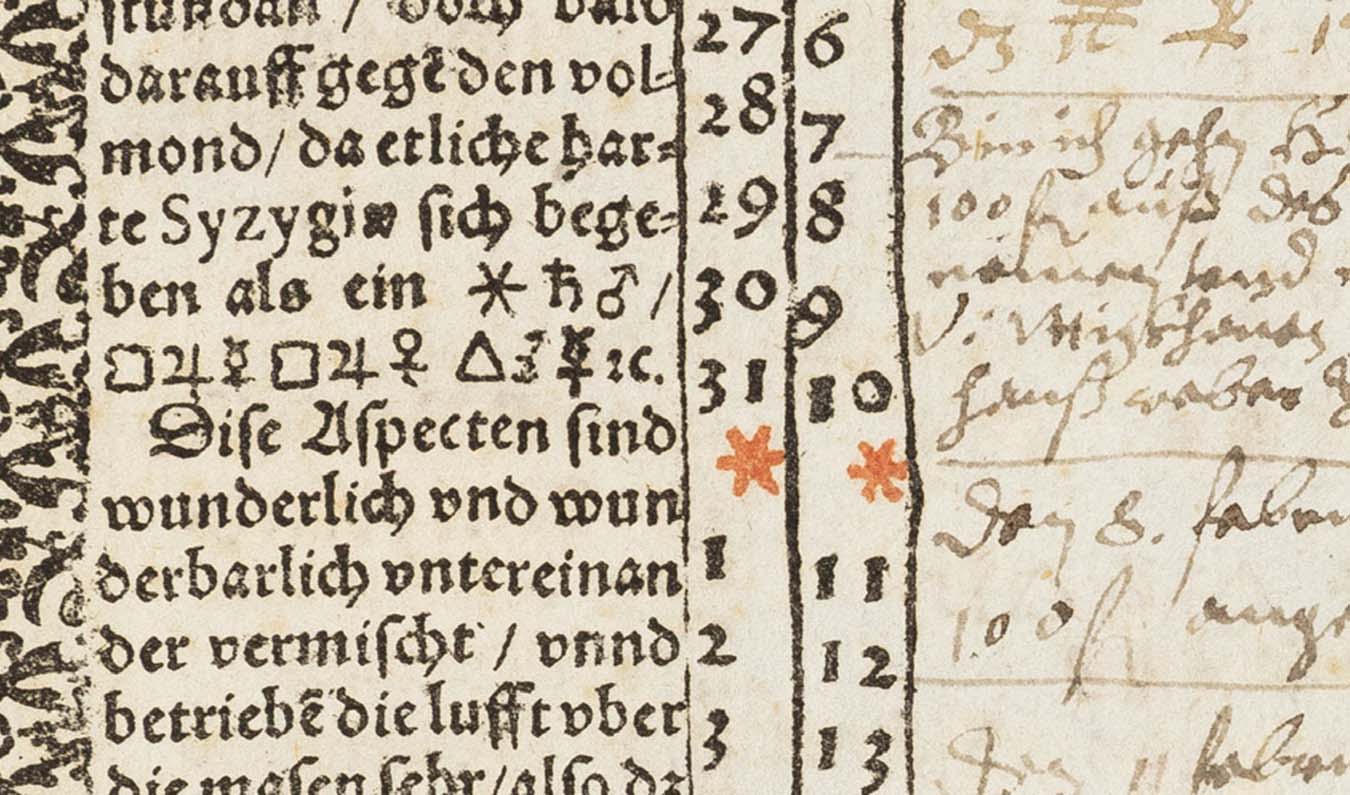 darauff gegẽ den vol-
mond/ da etliche har-
te Syzygiæ sich bege-
ben als ein ⚹ ♄ ♂ /
□ ♃ ☿ □ ♃ ♀ △ ♂ ☿ ꝛc.
Dise Aspecten sind
wunderlich vnd wun
derbarlich vntereinan
der vermischt / vnnd
betriebẽ die lufft vber
die masen sehr/also dz
27 6
28 7
29 8
30 9
31 10
* *
1 11
2 12
3 13
Bin ich
100 auß des
hanß weber
Den 8. feber
100 f ange
Den 11 feber